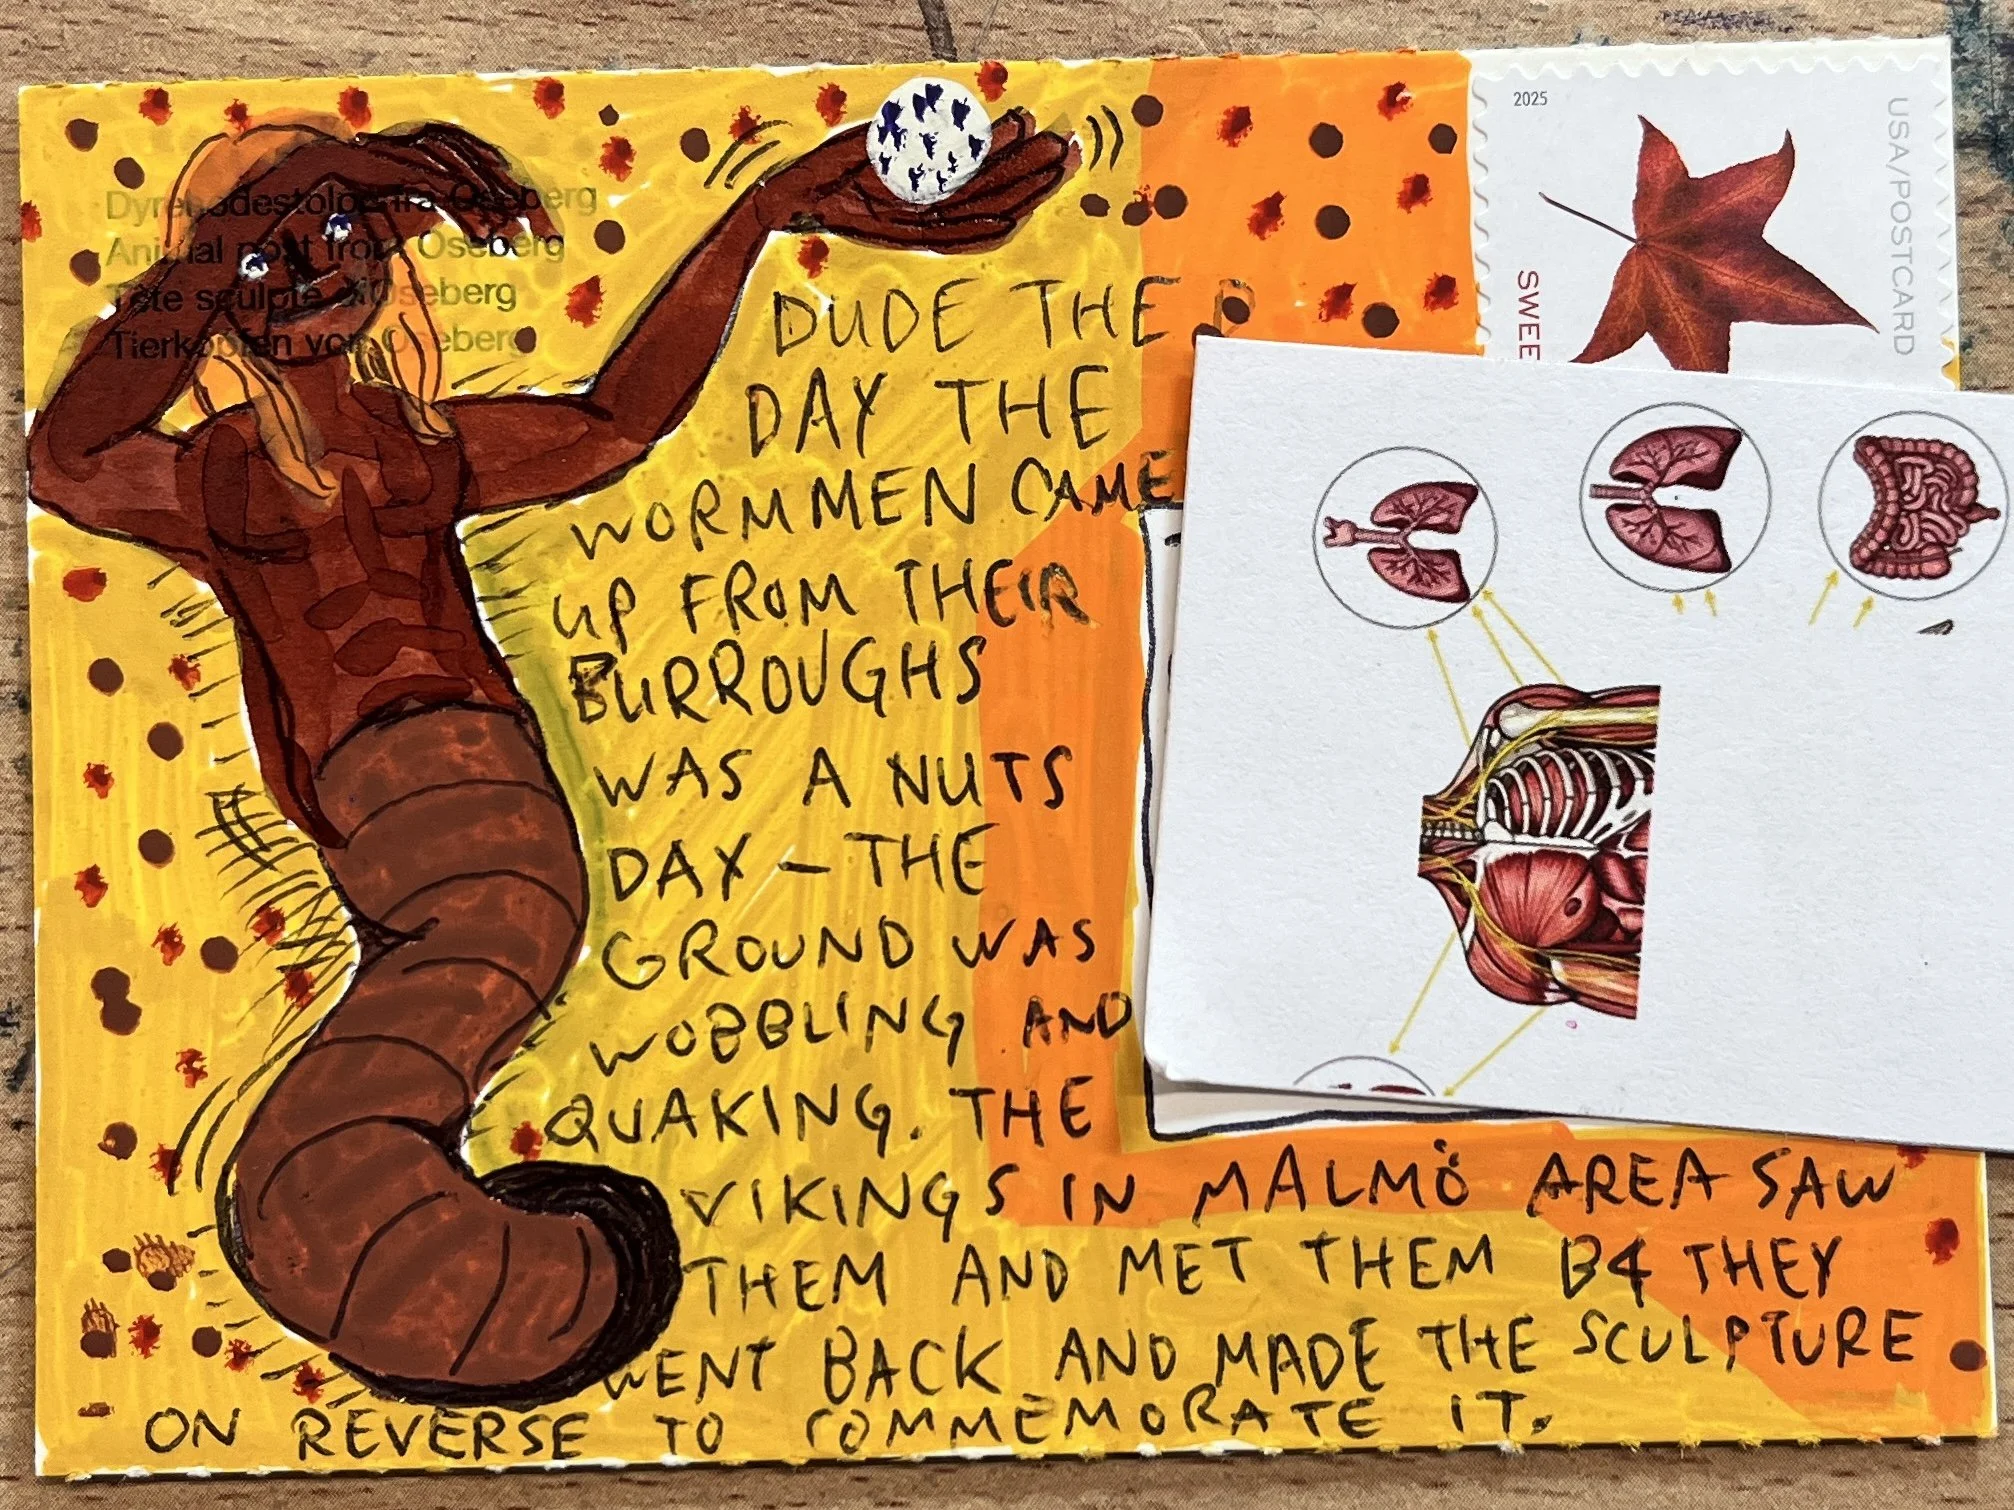 Dyrehodestolpe fra Oseberg
Animal post from Oseberg
Tête sculpté d'Oseberg
Tierköpfen von Oseberg
2025
USA/POSTCARD
SWEE
DUDE THE
DAY THE
WORMMEN CAME
UP FROM THEIR
BURROUGHS
WAS A NUTS
DAY – THE
GROUND WAS
WOBBLING AND
QUAKING. THE
VIKINGS IN MALMÖ AREA SAW
THEM AND MET THEM B4 THEY
WENT BACK AND MADE THE SCULPTURE
ON REVERSE TO COMMEMORATE IT.